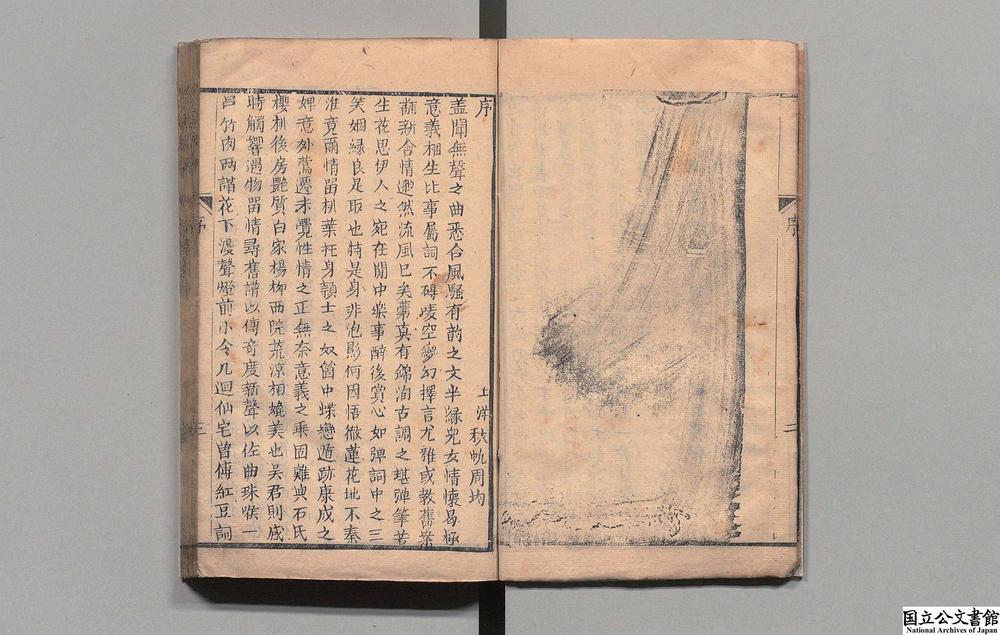 序
上洋秋帆周均
蓋聞無聲之曲悉合風騷有韵之文半緣兒女情懷曷極
意義相生比事屬詞不碍唛空夢幻擇言尤雅或教舊樂
翻新含情邈然流風已矣第真有錦洵古調之堪彈筆若
生花思伊人之宛在閒中樂事醉後賞心如彈詞中之三
笑姻緣良足取也特是身非泡影何因悟徹蓮花地不秦
淮竟爾情留桃葉托身顔士之奴箇中蝶戀遁跡康成之
婢意外鶯遷未覺性情之正無奈意義之乘固難與石氏
櫻桃後房艷質白家楊柳西院荒涼相媲美也吴君則感
時觸響遇物留情尋舊譜以傳奇度新聲以佐曲珠喉一
吕竹肉兩諧花下漫聲燈前小令几迴仙宅曾傳紅豆詞
序
三
序
二
国立公文書館
National Archives of Japan